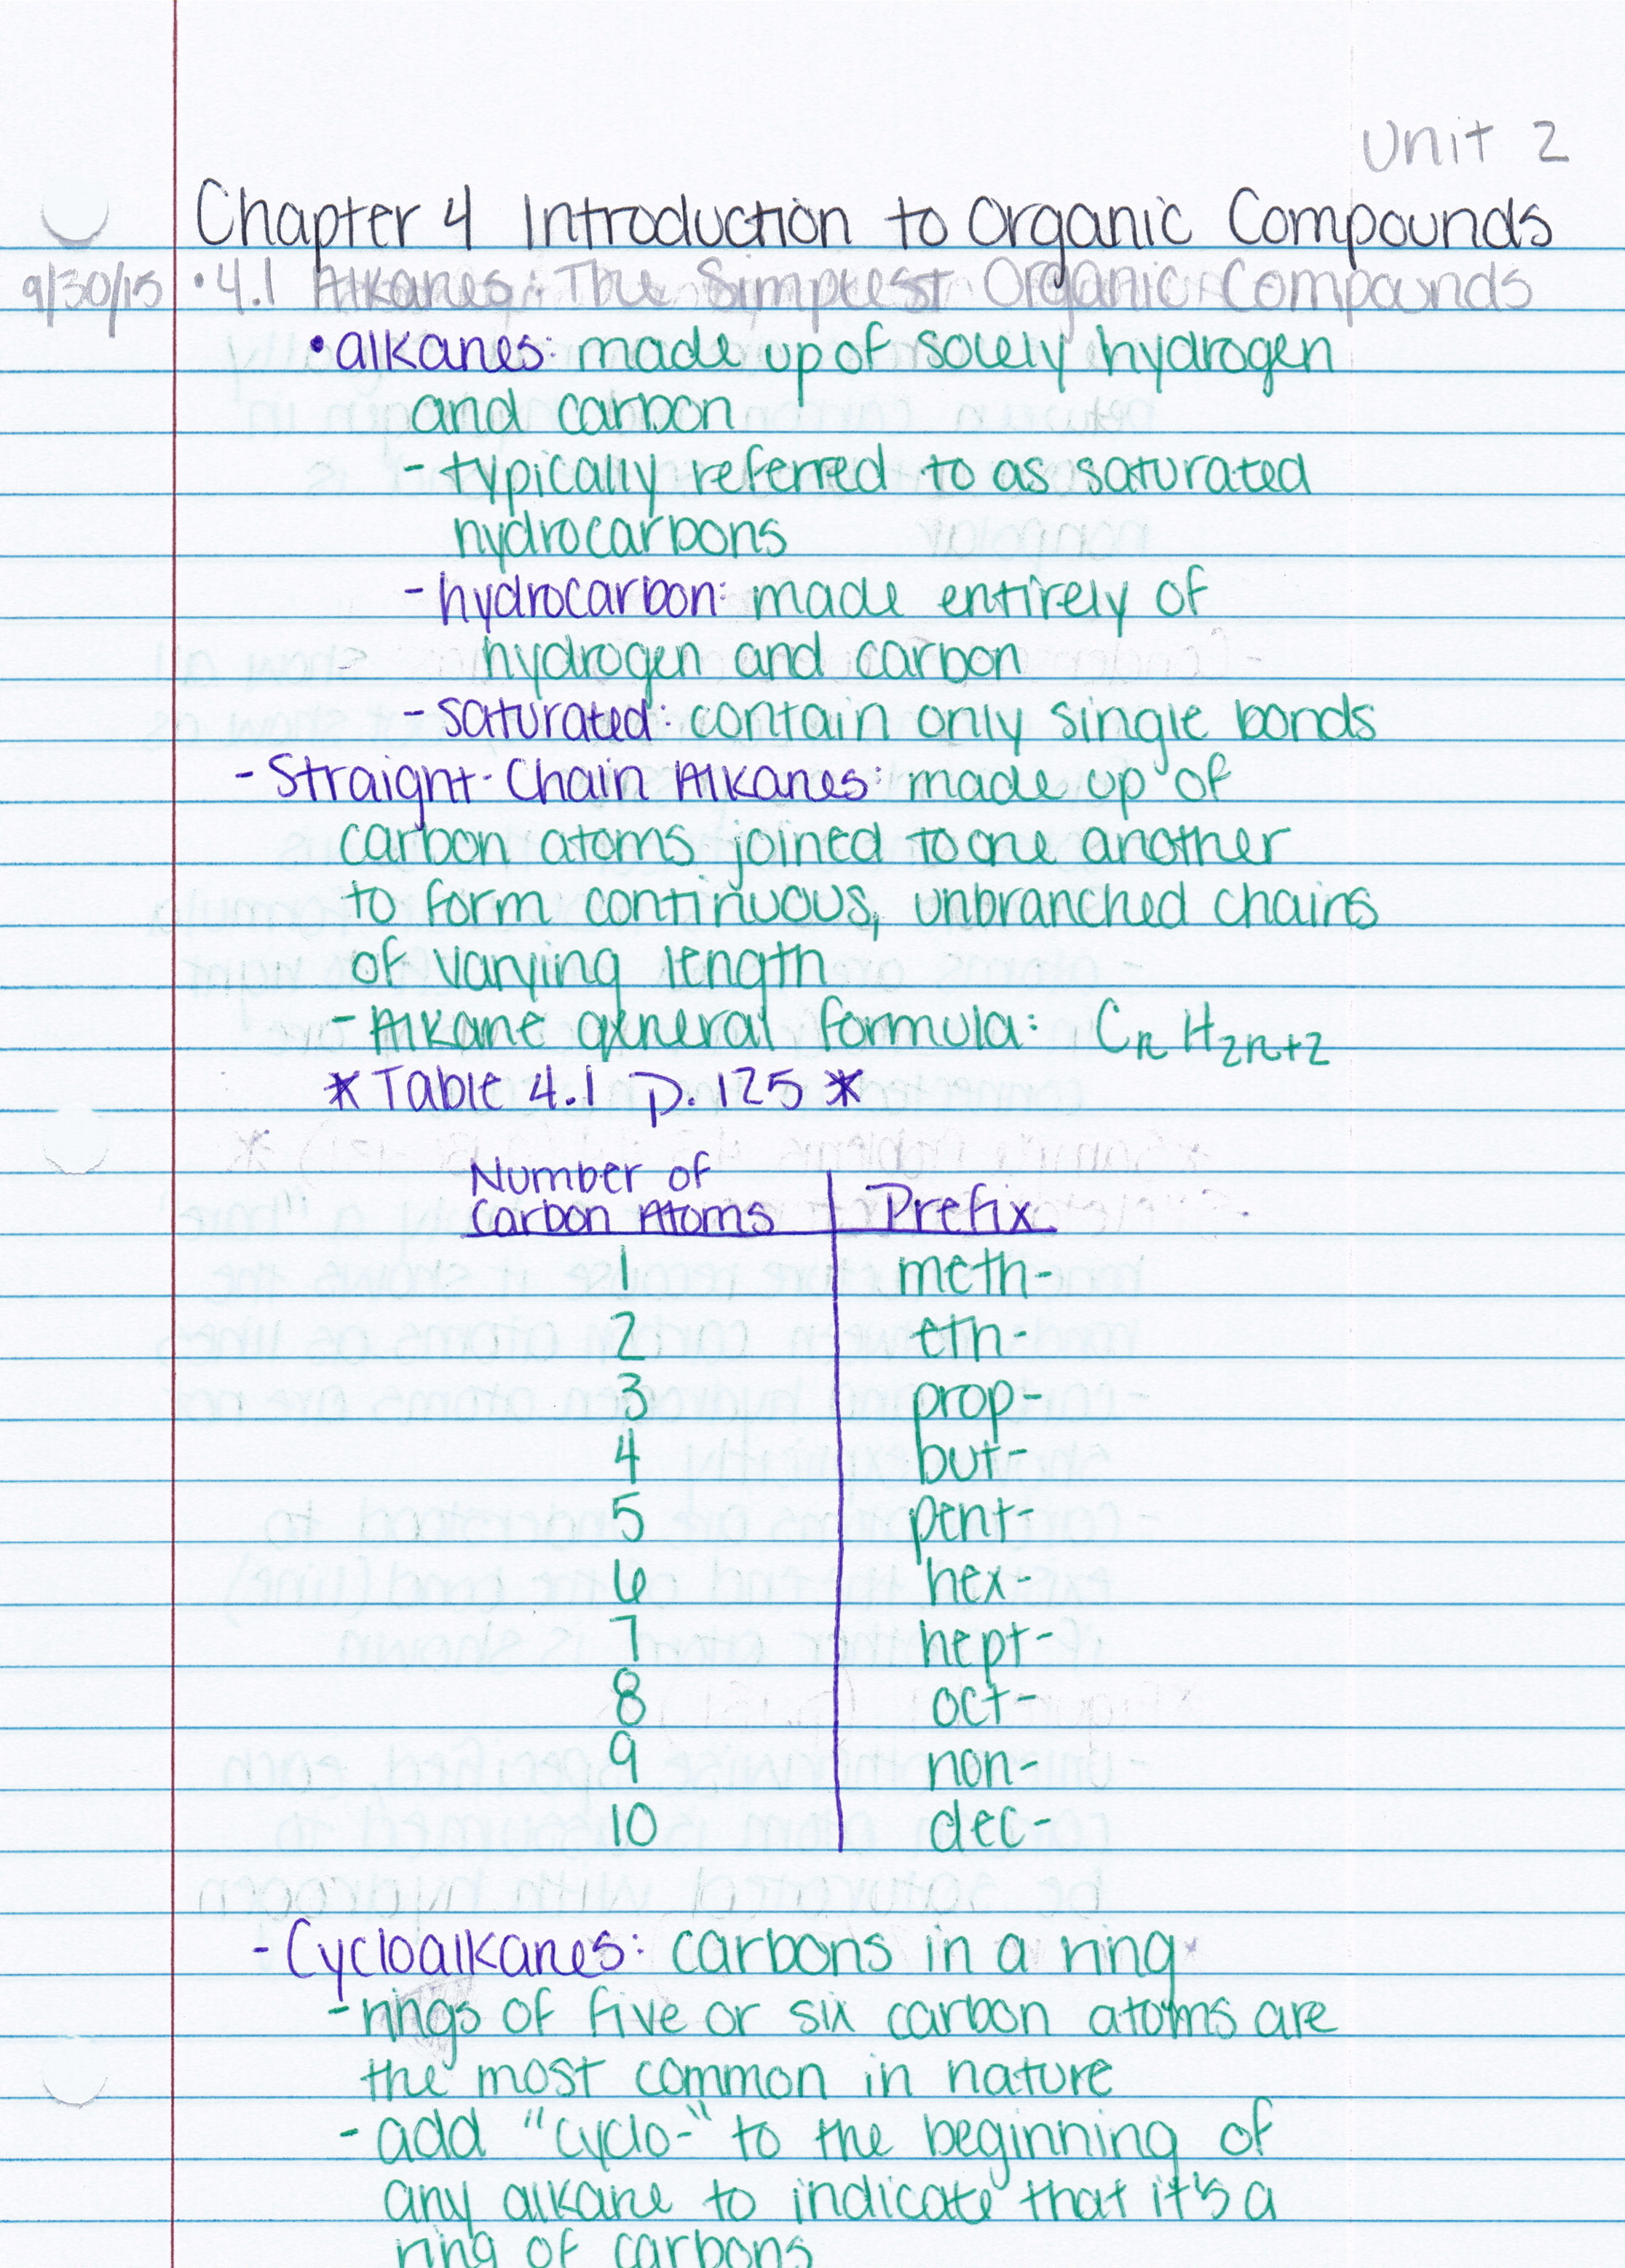 Unit 2
Chapter 4 Introduction to Organic Compounds
9/30/15 • 4.1 Alkanes: The Simplest Organic Compounds
• alkanes: made up of solely hydrogen
and carbon
- typically referred to as saturated
hydrocarbons
- hydrocarbon: made entirely of
hydrogen and carbon
- saturated: contain only single bonds
- Straight-Chain Alkanes: made up of
carbon atoms joined to one another
to form continuous, unbranched chains
of varying length
- Alkane general formula: CnH2n+2
* Table 4.1 p. 125 *
Number of
Carbon Atoms Prefix
1 meth-
2 eth-
3 prop-
4 but-
5 pent-
6 hex-
7 hept-
8 oct-
9 non-
10 dec-
- Cycloalkanes: carbons in a ring
- rings of five or six carbon atoms are
the most common in nature
- add "cyclo-" to the beginning of
any alkane to indicate that it's a
ring of carbons